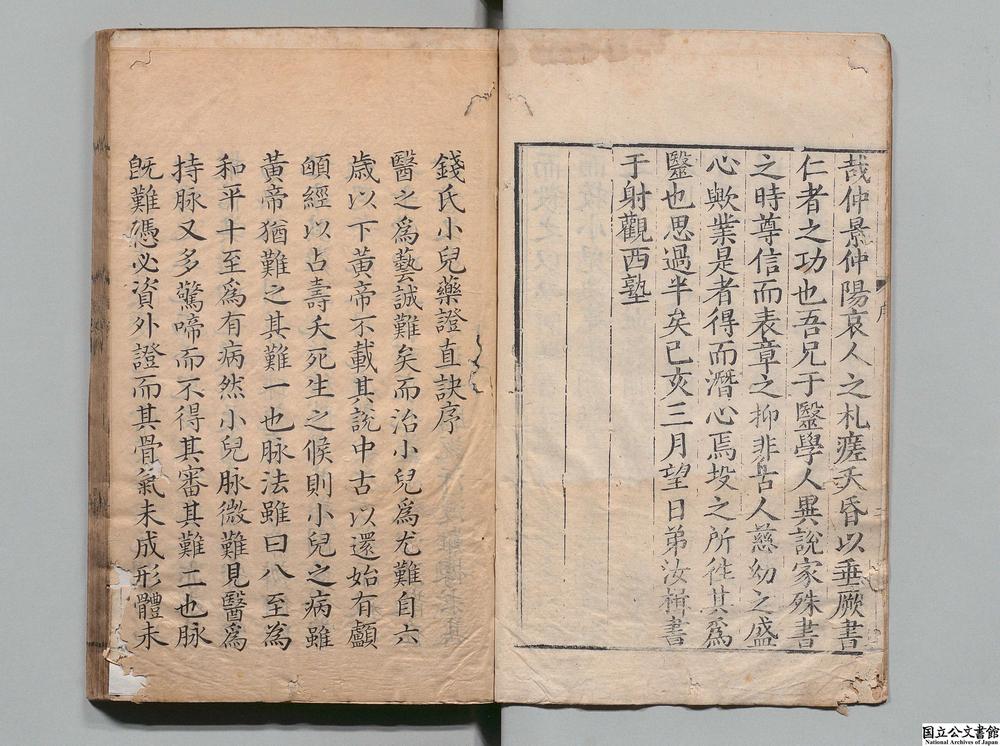 哉仲景仲陽哀人之札瘥夭昏以垂厥書
仁者之功也吾兄于醫學人異說家殊書
之時尊信而表章之抑非古人慈幼之盛
心歟業是者得而潛心焉投之所徃其爲
醫也思過半矣己亥三月望日弟汝楫書
于射觀西塾
序
錢氏小兒藥證直訣序
醫之爲藝誠難矣而治小兒爲尤難自六
歲以下黃帝不載其說中古以還始有顱
䪿經以占壽夭死生之候則小兒之病雖
黃帝猶難之其難一也脉法雖曰八至爲
和平十至爲有病然小兒脉微難見醫爲
持脉又多驚啼而不得其審其難二也脉
旣難憑必資外證而其骨氣未成形體未
国立公文書館
National Archives of Japan